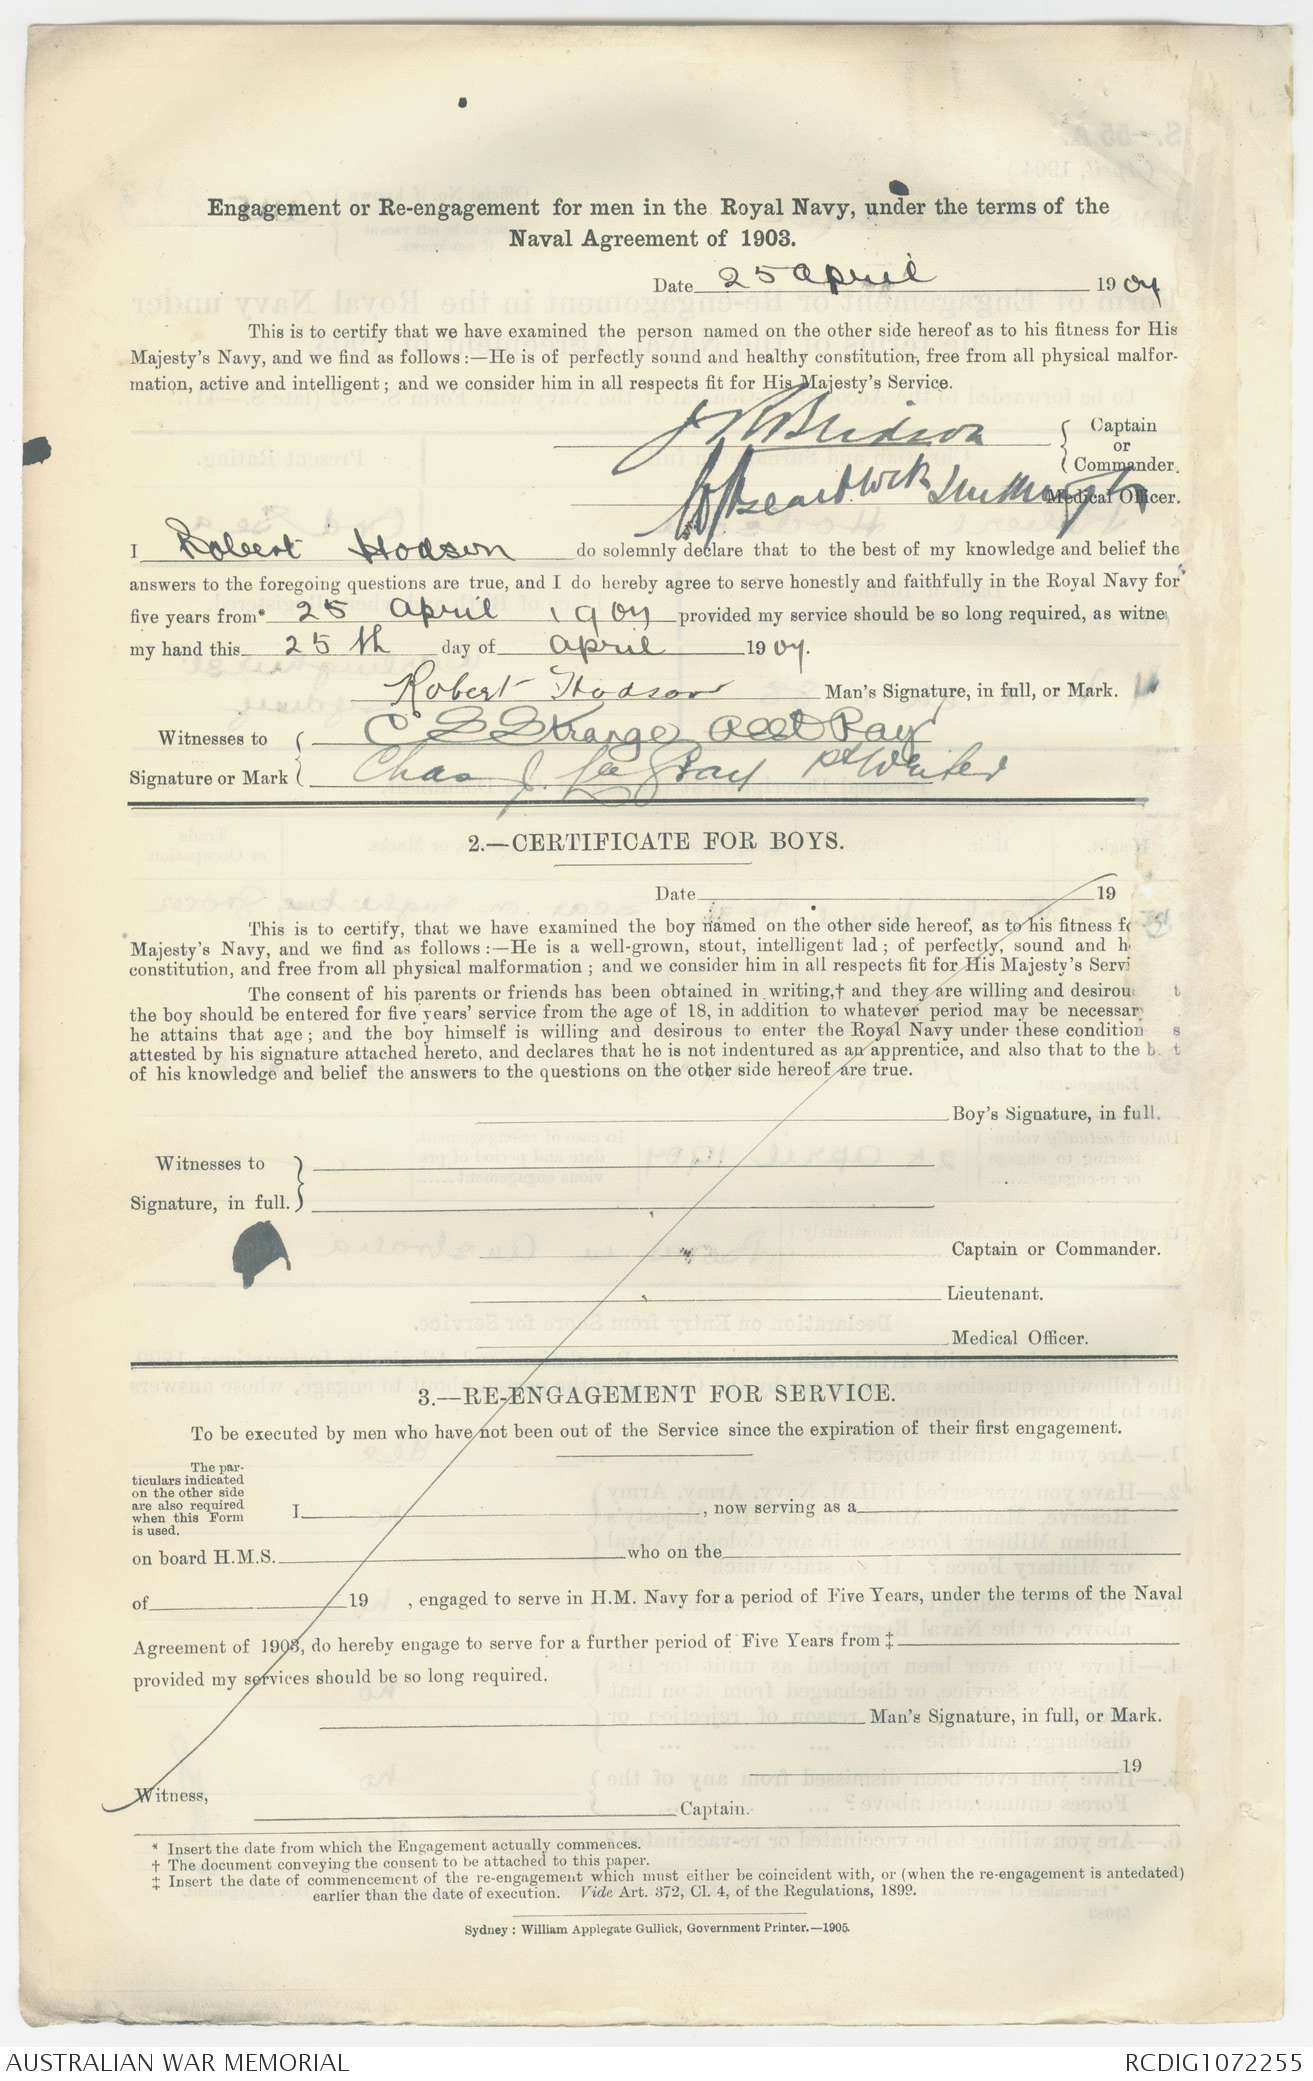 Engagement or Re-engagement for men in the Royal Navy, under the terms of the
Naval Agreement of 1903.
Date 25 April 1907
This is to certify that we have examined the person named on the other side hereof as to his fitness for His
Majesty's Navy, and we find as follows:—He is of perfectly sound and healthy constitution, free from all physical malfor-
mation, active and intelligent; and we consider him in all respects fit for His Majesty's Service.
Captain
or
Commander.
Medical Officer.
I Robert Hodson do solemnly declare that to the best of my knowledge and belief the
answers to the foregoing questions are true, and I do hereby agree to serve honestly and faithfully in the Royal Navy for
five years from* 25 April 1907 provided my service should be so long required, as witne
my hand this 25th day of April 1907.
Robert Hodson Man's Signature, in full, or Mark.
Witnesses to C S Strange Asst Pay
Signature or Mark Chas J. Le Gray Writer
2.—CERTIFICATE FOR BOYS.
Date 19
This is to certify, that we have examined the boy named on the other side hereof, as to his fitness fo
Majesty's Navy, and we find as follows:—He is a well-grown, stout, intelligent lad; of perfectly, sound and h
constitution, and free from all physical malformation; and we consider him in all respects fit for His Majesty's Servi
The consent of his parents or friends has been obtained in writing,† and they are willing and desirou t
the boy should be entered for five years' service from the age of 18, in addition to whatever period may be necessar
he attains that age; and the boy himself is willing and desirous to enter the Royal Navy under these condition s
attested by his signature attached hereto, and declares that he is not indentured as an apprentice, and also that to the b t
of his knowledge and belief the answers to the questions on the other side hereof are true.
Boy's Signature, in full.
Witnesses to
Signature, in full.
Captain or Commander.
Lieutenant.
Medical Officer.
3.—RE-ENGAGEMENT FOR SERVICE.
To be executed by men who have not been out of the Service since the expiration of their first engagement.
The par-
ticulars indicated
on the other side
are also required
when this Form
is used.
I , now serving as a
on board H.M.S. who on the
of 19 , engaged to serve in H.M. Navy for a period of Five Years, under the terms of the Naval
Agreement of 1903, do hereby engage to serve for a further period of Five Years from ‡
provided my services should be so long required.
Man's Signature, in full, or Mark.
19
Witness,
Captain.
* Insert the date from which the Engagement actually commences.
† The document conveying the consent to be attached to this paper.
‡ Insert the date of commencement of the re-engagement which must either be coincident with, or (when the re-engagement is antedated)
earlier than the date of execution. Vide Art. 372, Cl. 4, of the Regulations, 1899.
Sydney: William Applegate Gullick, Government Printer.—1905.
AUSTRALIAN WAR MEMORIAL
RCDIG1072255